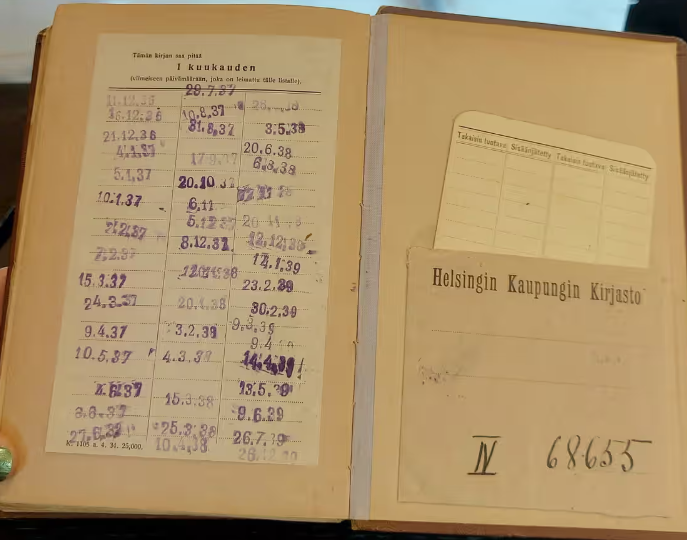 Tämän kirjan saa pitää
1 kuukauden
(viimeiseen päivämäärään, joka on leimattu tälle listalle).
29.7.37
11.12.36
16.12.36 10.8.37
21.12.36 31.8.37 3.5.38
4.1.37 20.6.38
5.1.37 6.8.38
20.10
10.1.37 6.11
7.2.37 5.12.37
8.12.37 12.12.38
7.2.37 14.1.39
15.3.37 23.2.39
24.3.37 20.1.38 30.2.39
9.4.37 3.2.38 9.3.39
9.4
10.5.37 4.3.38 14.4.39
4.6.37 15.3.38 13.5.39
8.6.37 9.6.39
27.6.37 25.3.38 26.7.39
10.4.38
K. 1105 a. 4. 31. 25,000.
Takaisin tuotava Sisäänjätetty Takaisin tuotava Sisäänjätetty
Helsingin Kaupungin Kirjasto
IV 68655